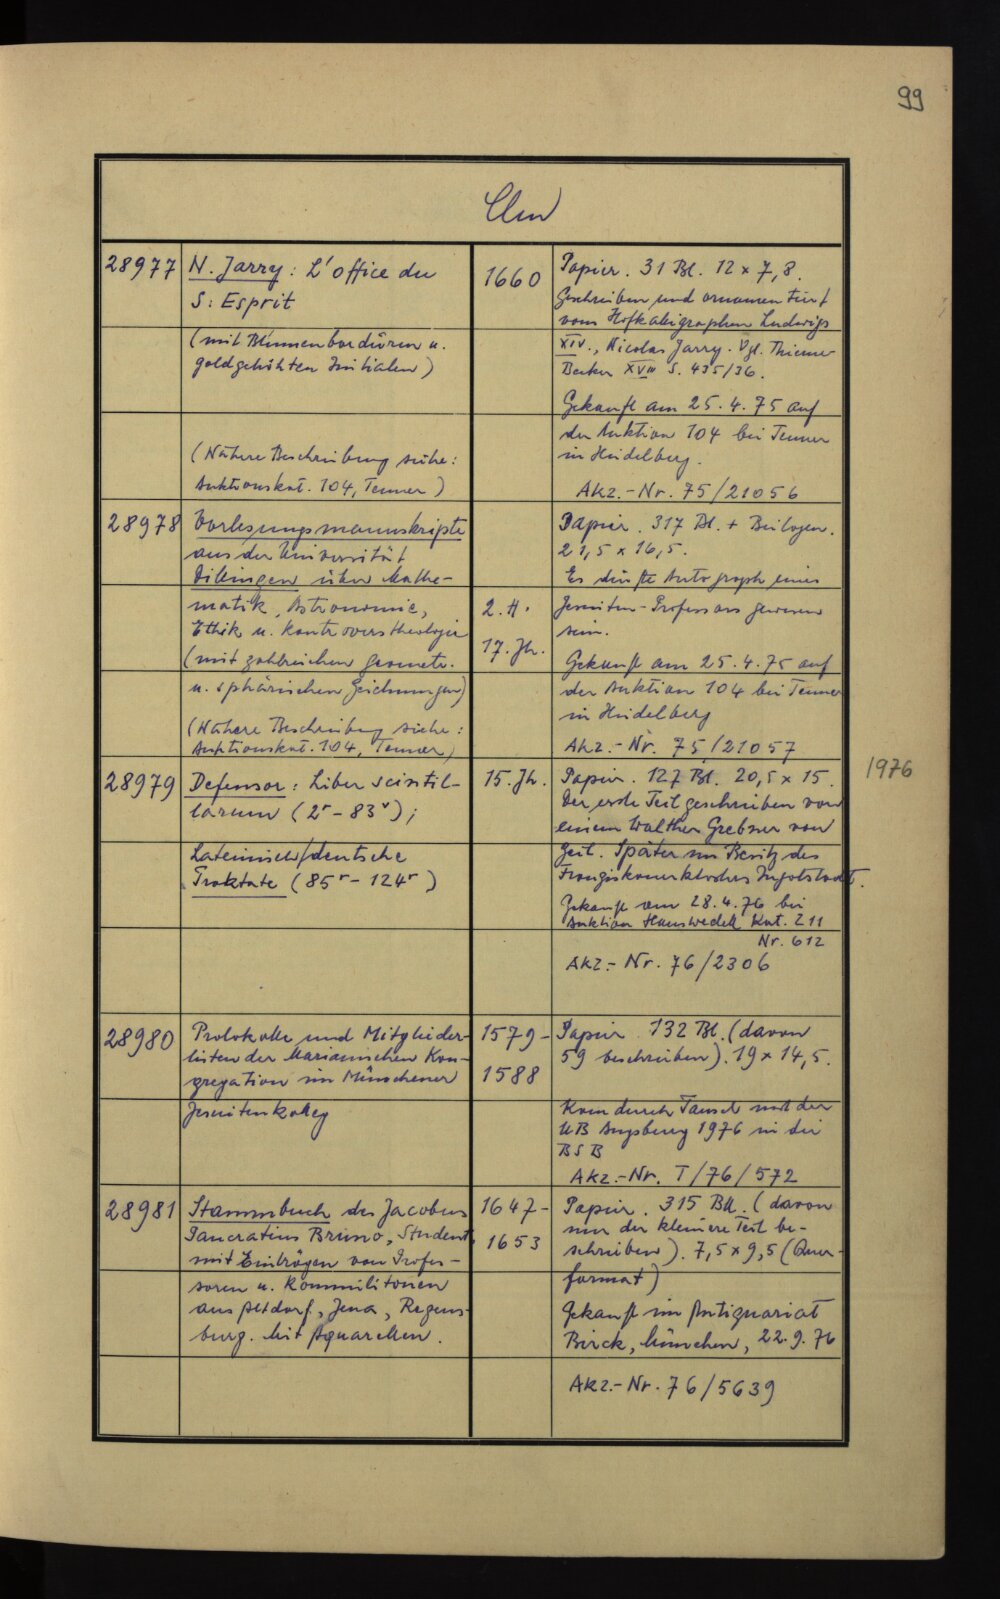 99
Clm
28977
N. Jarry: L'office du
S: Esprit
(mit Blumenbordüren u.
goldgehöhten Initialen)
(Nähere Beschreibung siehe:
Auktionskat. 104, Tenner)
1660
Papier. 31 Bl. 12 x 7,8.
Geschrieben und ornamentiert
vom Hofkaligraphen Ludwigs
XIV., Nicolas Jarry. Vgl. Thieme
Becker XVIII S. 435/36.
Gekauft am 25.4.75 auf
der Auktion 104 bei Tenner
in Heidelberg.
Akz.-Nr. 75/21056
28978
Vorlesungsmanuskripte
aus der Universität
Dillingen über Mathe-
matik, Astronomie,
Ethik u. Kontroverstheologie
(mit zahlreichen geometr.
u. sphärischen Zeichnungen)
(Nähere Beschreibung siehe:
Auktionskat. 104, Tenner)
2. H.
17. Jh.
Papier. 317 Bl. + Beilagen.
21,5 x 16,5.
Es dürfte Autograph eines
Jesuiten-Professors gewesen
sein.
Gekauft am 25.4.75 auf
der Auktion 104 bei Tenner
in Heidelberg
Akz.-Nr. 75/21057
28979
Defensor: Liber scintil-
larum (2r - 83v);
Lateinisch/deutsche
Traktate (85r - 124r)
15. Jh.
Papier. 127 Bl. 20,5 x 15.
Der erste Teil geschrieben von
einem Walther Grebner von
Zeil. Später im Besitz des
Franziskanerklosters Ingolstadt.
Gekauft am 28.4.76 bei
Auktion Hauswedell Kat. 211
Nr. 612
Akz.-Nr. 76/2306
1976
28980
Protokolle und Mitglieder-
listen der Marianischen Kon-
gregation im Münchener
Jesuitenkolleg
1579-
1588
Papier. 132 Bl. (davon
59 beschrieben). 19 x 14,5.
Kam durch Tausch mit der
UB Augsburg 1976 in die
BSB
Akz.-Nr. T/76/572
28981
Stammbuch des Jacobus
Pancratius Bruno, Student,
mit Einträgen von Profes-
soren u. Kommilitonen
aus Altdorf, Jena, Regens-
burg. Mit Aquarellen.
1647-
1653
Papier. 315 Bll. (davon
nur der kleinere Teil be-
schrieben). 7,5 x 9,5 (Quer-
format)
Gekauft im Antiquariat
Birck, München, 22.9.76
Akz.-Nr. 76/5639